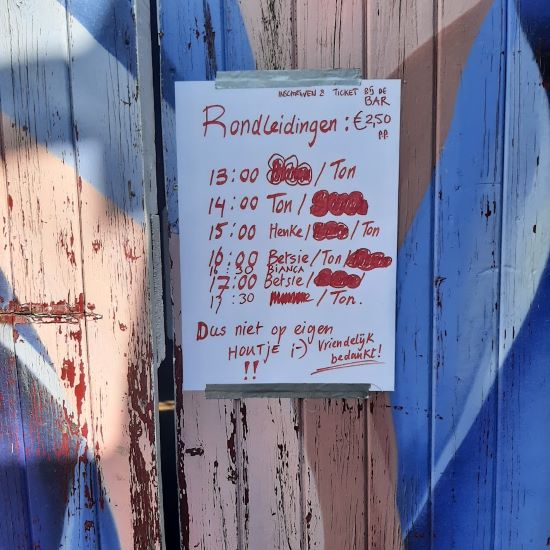 INSCHRIJVEN & TICKET BIJ DE BAR
Rondleidingen: €2,50 P.P.
13:00 / Ton
14:00 Ton /
15:00 Henke / / Ton
16:00 Betsie / Ton /
16:30 BIANCA
17:00 Betsie /
17:30 / Ton.
Dus niet op eigen
HOUTJE ;-) Vriendelijk
!! bedankt!